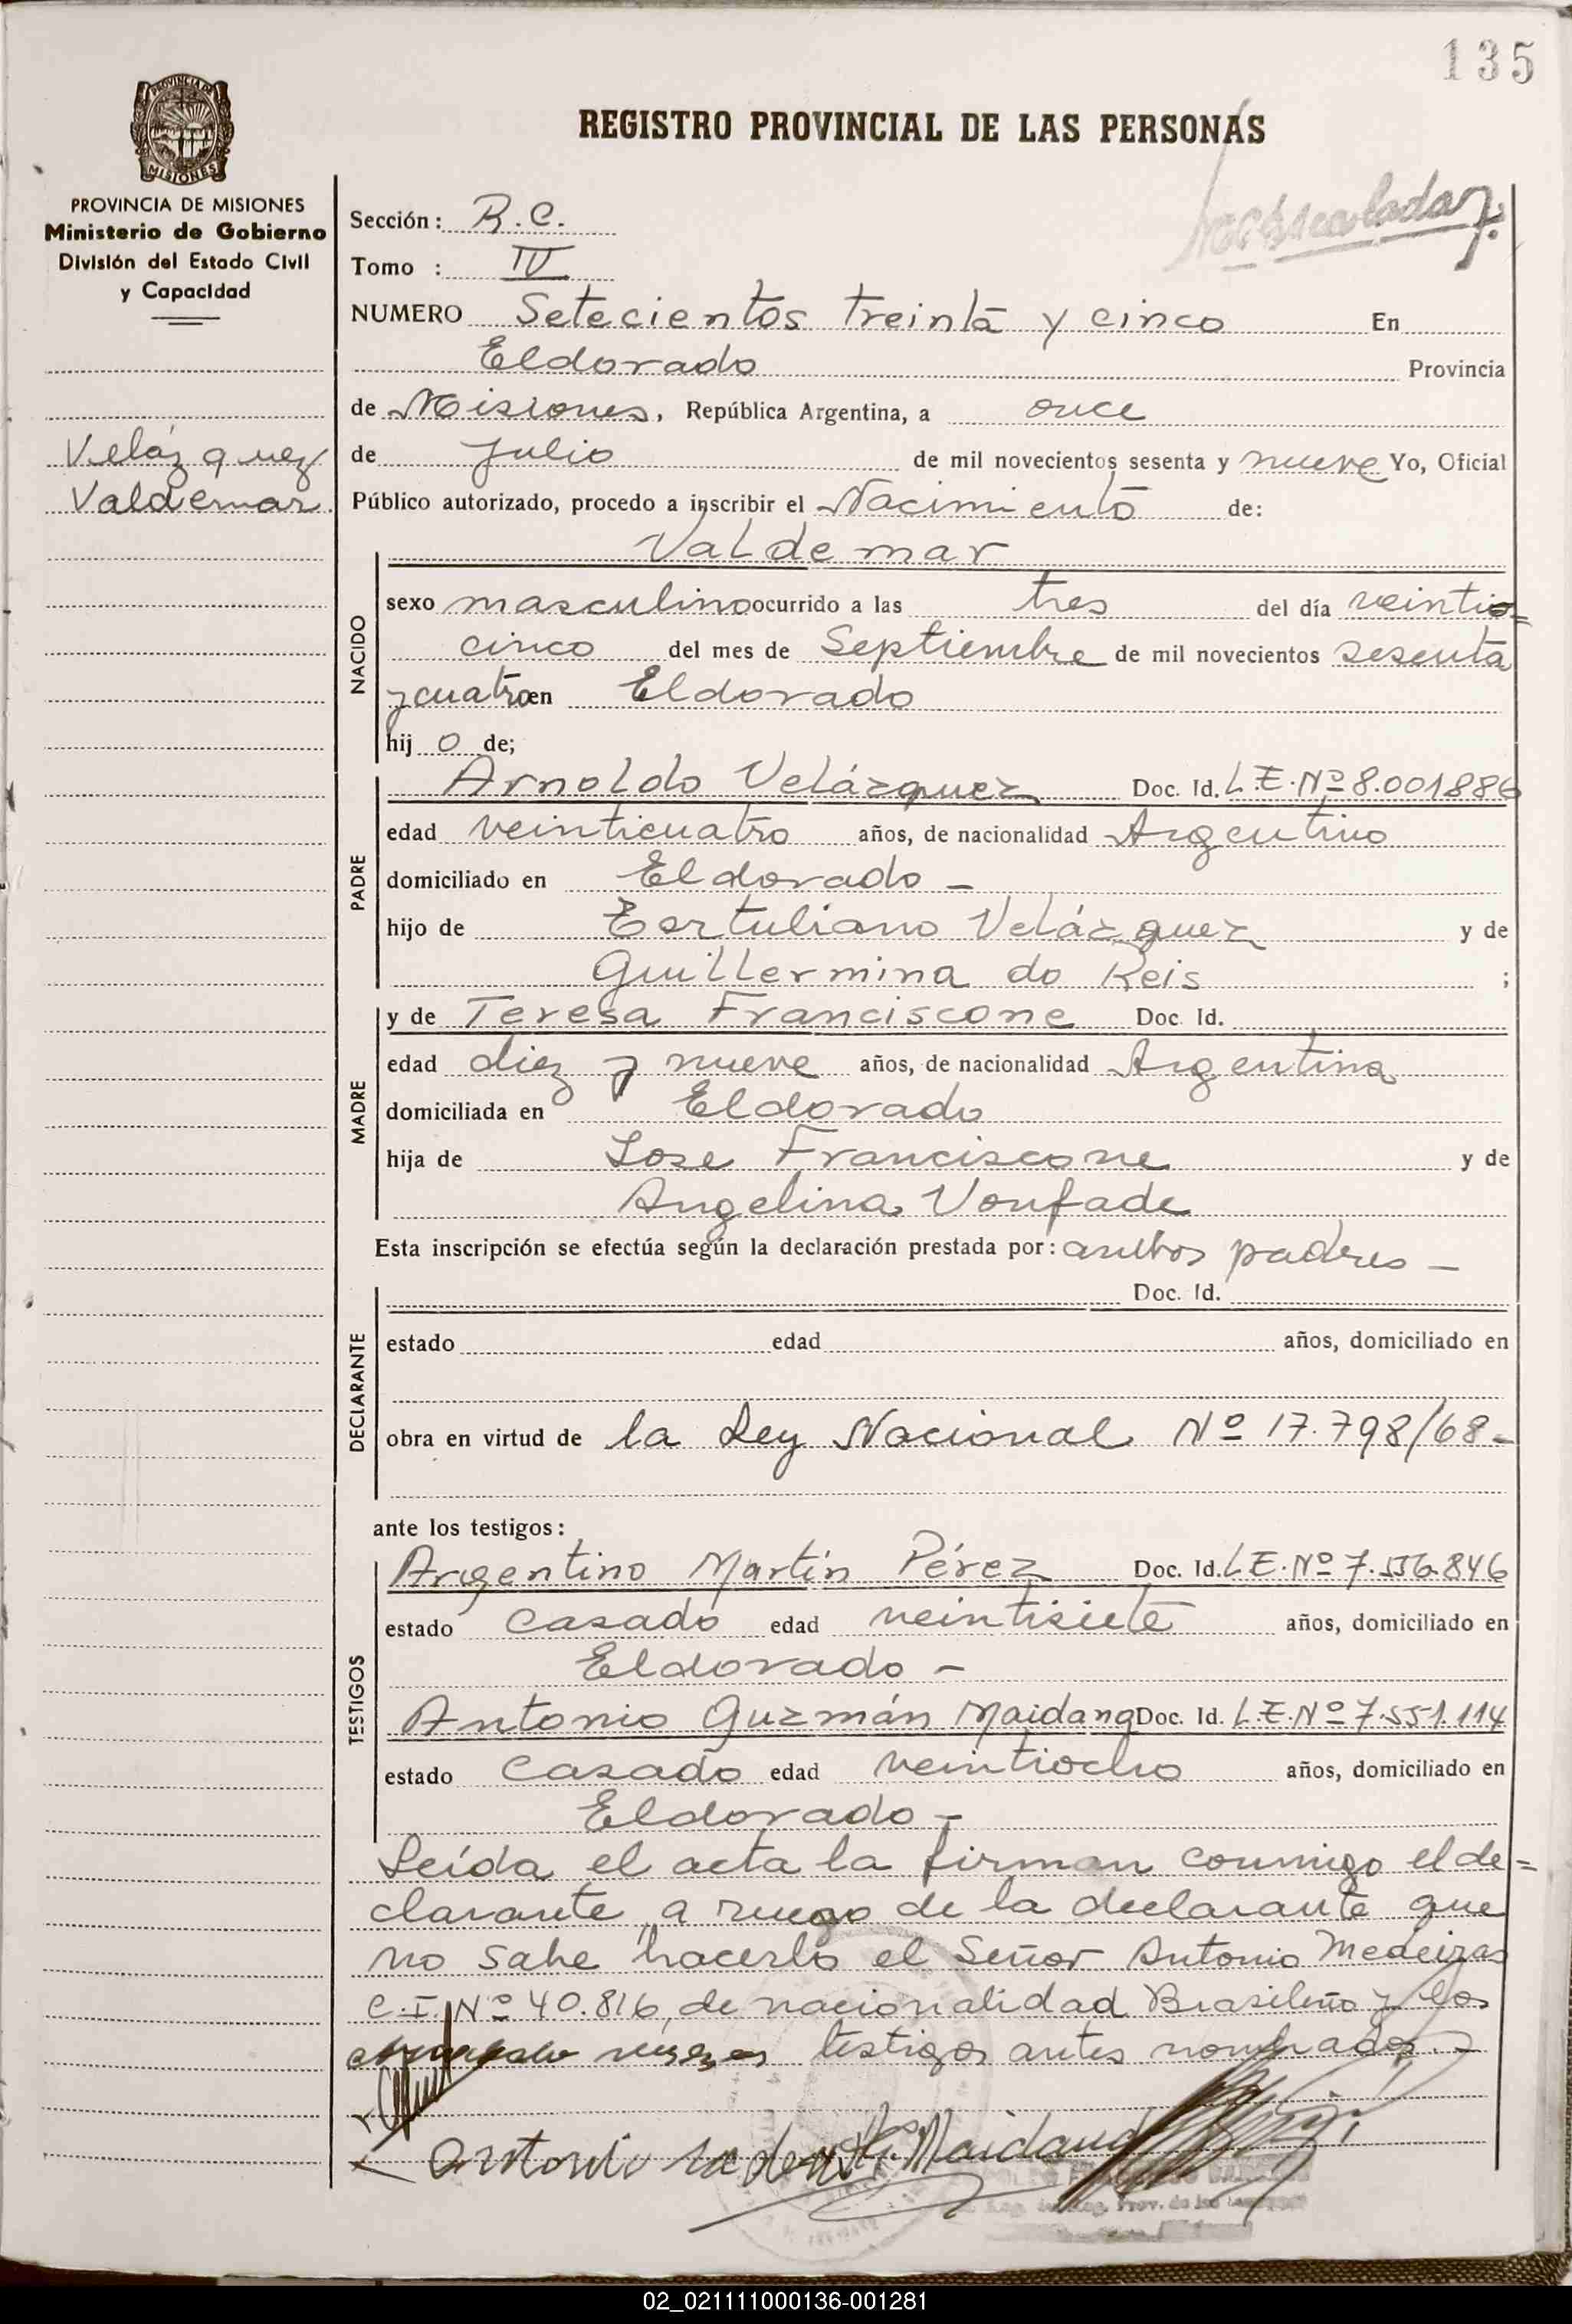 135
PROVINCIA DE
MISIONES
REGISTRO PROVINCIAL DE LAS PERSONAS
PROVINCIA DE MISIONES
Ministerio de Gobierno
División del Estado Civil
y Capacidad
Velázquez
Valdemar.
Sección: R.C.
Tomo : IV
NUMERO Setecientos treinta y cinco En
Eldorado Provincia
de Misiones, República Argentina, a once
de Julio de mil novecientos sesenta y nueve Yo, Oficial
Público autorizado, procedo a inscribir el Nacimiento de:
NACIDO
Valdemar
sexo masculino ocurrido a las tres del día veinti=
cinco del mes de Septiembre de mil novecientos sesenta
y cuatro en Eldorado
hij o de;
PADRE
Arnoldo Velázquez Doc. Id. L.E. Nº 8.001886
edad veinticuatro años, de nacionalidad Argentino
domiciliado en Eldorado -
hijo de Tertuliano Velázquez y de
Guillermina do Reis ;
MADRE
y de Teresa Franciscone Doc. Id.
edad diez y nueve años, de nacionalidad Argentina
domiciliada en Eldorado
hija de Jose Franciscone y de
Angelina Vonfade
Esta inscripción se efectúa según la declaración prestada por: ambos padres -
DECLARANTE
Doc. Id.
estado edad años, domiciliado en
obra en virtud de la Ley Nacional Nº 17.798/68-
ante los testigos:
TESTIGOS
Argentino Martín Pérez Doc. Id. L.E. Nº 7.556.846
estado casado edad veintisiete años, domiciliado en
Eldorado -
Antonio Guzmán Maidana Doc. Id. L.E. Nº 7.551.114
estado casado edad veintiocho años, domiciliado en
Eldorado -
Leída el acta la firman conmigo el de=
clarante, a ruego de la declarante que
no sabe hacerlo el Señor Antonio Medeiras
C.I. Nº 40.816, de nacionalidad Brasileño y los
testigos antes nombrados.-
Maidana
02_021111000136-001281